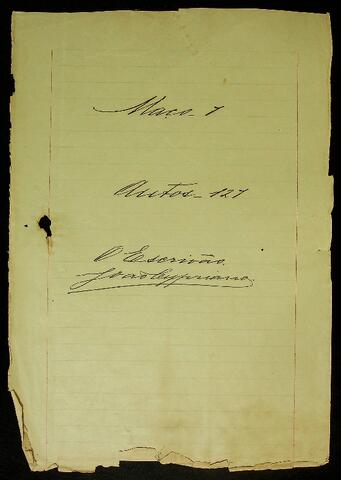 Maço - 1
Autos - 127
O Escrivão
João Cypriano